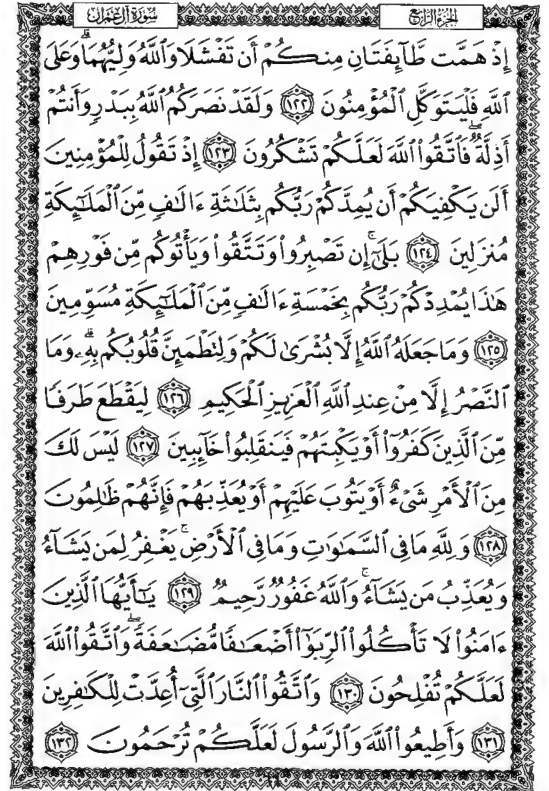 سُورَةُ آلِ عِمْرَانَ
الجُزْءُ الرَّابِعُ
إِذْ هَمَّت طَّآئِفَتَانِ مِنكُمْ أَن تَفْشَلَا وَٱللَّهُ وَلِيُّهُمَا ۗ وَعَلَى
ٱللَّهِ فَلْيَتَوَكَّلِ ٱلْمُؤْمِنُونَ ﴿١٢٢﴾ وَلَقَدْ نَصَرَكُمُ ٱللَّهُ بِبَدْرٍ وَأَنتُمْ
أَذِلَّةٌ ۖ فَٱتَّقُوا۟ ٱللَّهَ لَعَلَّكُمْ تَشْكُرُونَ ﴿١٢٣﴾ إِذْ تَقُولُ لِلْمُؤْمِنِينَ
أَلَن يَكْفِيَكُمْ أَن يُمِدَّكُمْ رَبُّكُم بِثَلَـٰثَةِ ءَالَـٰفٍ مِّنَ ٱلْمَلَـٰٓئِكَةِ
مُنزَلِينَ ﴿١٢٤﴾ بَلَىٰٓ ۚ إِن تَصْبِرُوا۟ وَتَتَّقُوا۟ وَيَأْتُوكُم مِّن فَوْرِهِمْ
هَـٰذَا يُمْدِدْكُمْ رَبُّكُم بِخَمْسَةِ ءَالَـٰفٍ مِّنَ ٱلْمَلَـٰٓئِكَةِ مُسَوِّمِينَ
﴿١٢٥﴾ وَمَا جَعَلَهُ ٱللَّهُ إِلَّا بُشْرَىٰ لَكُمْ وَلِتَطْمَئِنَّ قُلُوبُكُم بِهِۦ ۗ وَمَا
ٱلنَّصْرُ إِلَّا مِنْ عِندِ ٱللَّهِ ٱلْعَزِيزِ ٱلْحَكِيمِ ﴿١٢٦﴾ لِيَقْطَعَ طَرَفًا
مِّنَ ٱلَّذِينَ كَفَرُوٓا۟ أَوْ يَكْبِتَهُمْ فَيَنقَلِبُوا۟ خَآئِبِينَ ﴿١٢٧﴾ لَيْسَ لَكَ
مِنَ ٱلْأَمْرِ شَىْءٌ أَوْ يَتُوبَ عَلَيْهِمْ أَوْ يُعَذِّبَهُمْ فَإِنَّهُمْ ظَـٰلِمُونَ
﴿١٢٨﴾ وَلِلَّهِ مَا فِى ٱلسَّمَـٰوَٰتِ وَمَا فِى ٱلْأَرْضِ ۚ يَغْفِرُ لِمَن يَشَآءُ
وَيُعَذِّبُ مَن يَشَآءُ ۚ وَٱللَّهُ غَفُورٌ رَّحِيمٌ ﴿١٢٩﴾ يَـٰٓأَيُّهَا ٱلَّذِينَ
ءَامَنُوا۟ لَا تَأْكُلُوا۟ ٱلرِّبَوٰٓا۟ أَضْعَـٰفًا مُّضَـٰعَفَةً ۖ وَٱتَّقُوا۟ ٱللَّهَ
لَعَلَّكُمْ تُفْلِحُونَ ﴿١٣٠﴾ وَٱتَّقُوا۟ ٱلنَّارَ ٱلَّتِىٓ أُعِدَّتْ لِلْكَـٰفِرِينَ
﴿١٣١﴾ وَأَطِيعُوا۟ ٱللَّهَ وَٱلرَّسُولَ لَعَلَّكُمْ تُرْحَمُونَ ﴿١٣٢﴾